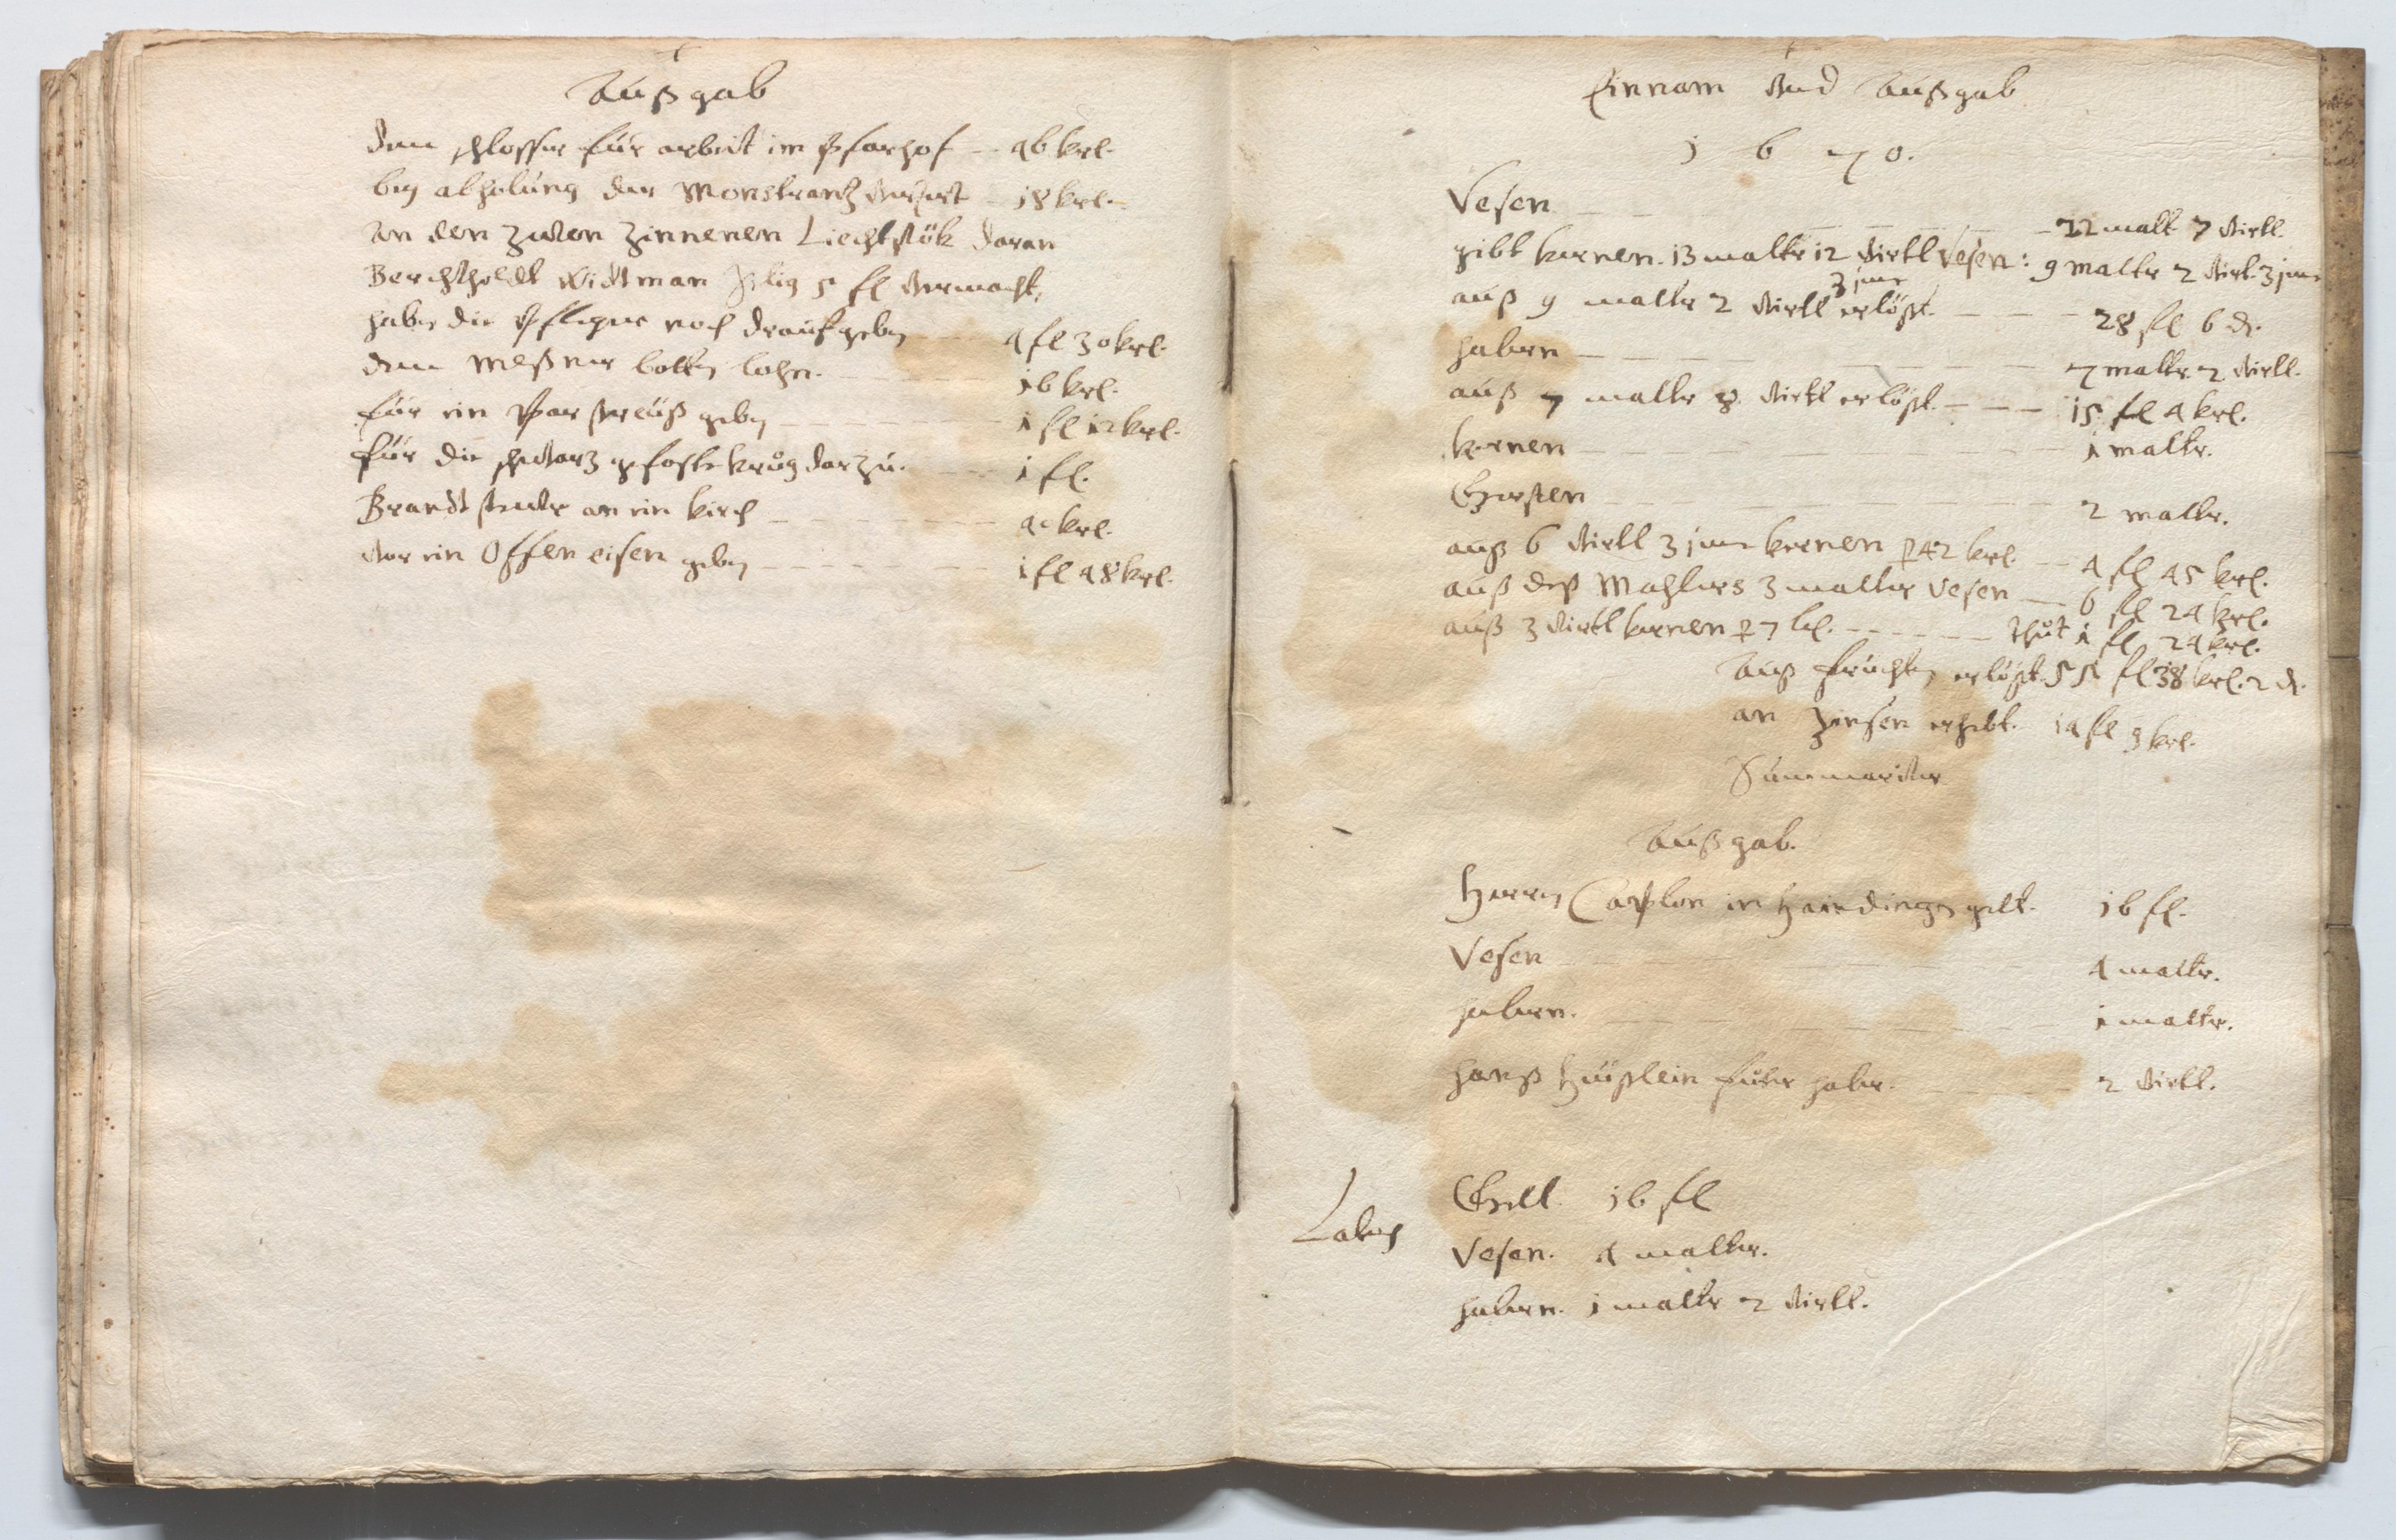 Außgab
dem schlosser für arbeit im Pfarhof — 46 krl.
bey abholung der Monstrantz verzert — 18 krl.
an den zwen zinnenen Liechtstök daran
Berchtholdt Widtman selig 5 fl vermacht,
haben die Pfleger noch drauf geben — 4 fl 30 krl.
dem Meßner botten lohn. — 16 krl.
für ein Par geben — 1 fl 12 krl.
für die schwarz krůg darzu. — 1 fl.
Brandt steuer an ein kirch — krl.
vor ein Offen eisen geben — 1 fl 48 krl.
Einnam Vnd Außgab
1 6 7 0.
Vesen — 22 malt 7 virtl.
gibt kernen. 13 maltr 12 virtl Vesen: 9 maltr 2 virt. 3 jmi
3 jmi
auß 9 maltr 2 virtl erlößt. — 28 fl 6 d.
habern — 7 maltr. 2 virtl.
auß 7 maltr 8 virtl erlößt. — 15 fl 4 krl.
kernen — 1 maltr.
Gersten — 2 maltr.
auß 6 virtl 3 jmi kernen p 42 krl. — 4 fl 45 krl.
auß deß Mahlers 3 malter Vesen — 6 fl 24 krl.
auß 3 virtl kernen p 7 — thůt 1 fl 24 krl.
Auß früchten erlößt. 55 fl 38 krl. 2 d.
an Zinsen erhebt. 14 fl 9 krl.
Summariter
Außgab.
Herren Caplon in gelt. 16 fl.
Vesen — 4 maltr.
habern. — 1 maltr.
hanß fůter haber. — 2 virtl.
Latus
Gelt. 16 fl
Vesen. 4 malter.
habern. 1 maltr 2 virtl.